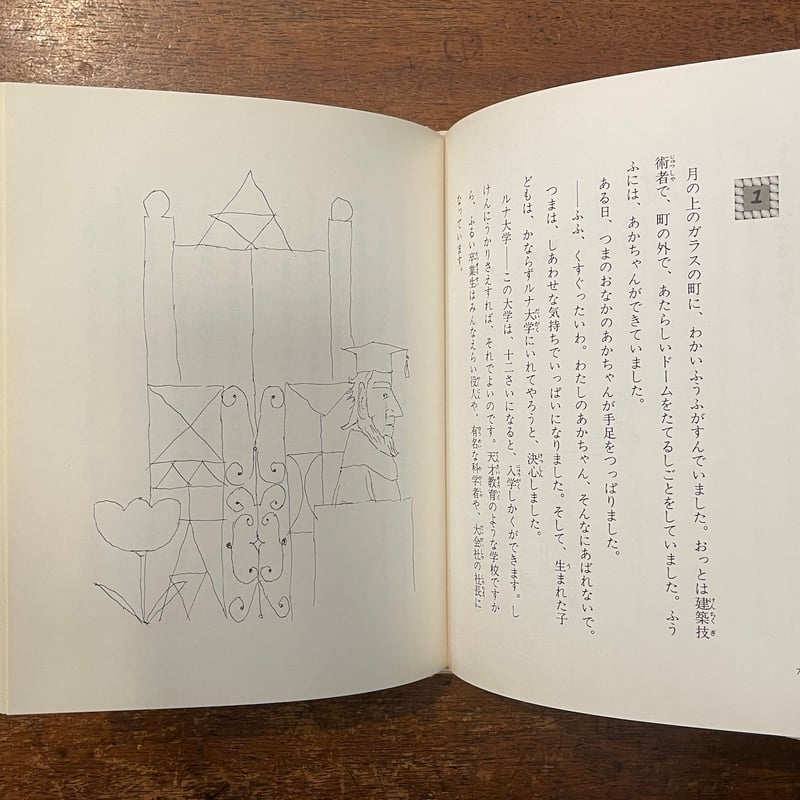 1
月の上のガラスの町に、わかいふうふがすんでいました。おっとは建築技
術者で、町の外で、あたらしいドームをたてるしごとをしていました。ふう
ふには、あかちゃんができていました。
ある日、つまのおなかのあかちゃんが手足をつっぱりました。
――ふふ、くすぐったいわ。わたしのあかちゃん、そんなにあばれないで。
つまは、しあわせな気持ちでいっぱいになりました。そして、生まれた子
どもは、かならずルナ大学にいれてやろうと、決心しました。
ルナ大学――この大学は、十二さいになると、入学しかくができます。し
けんにうかりさえすれば、それでよいのです。天才教育のような学校ですか
ら、ふるい卒業生はみんなえらい役人や、有名な科学者や、大会社の社長に
なっています。
7